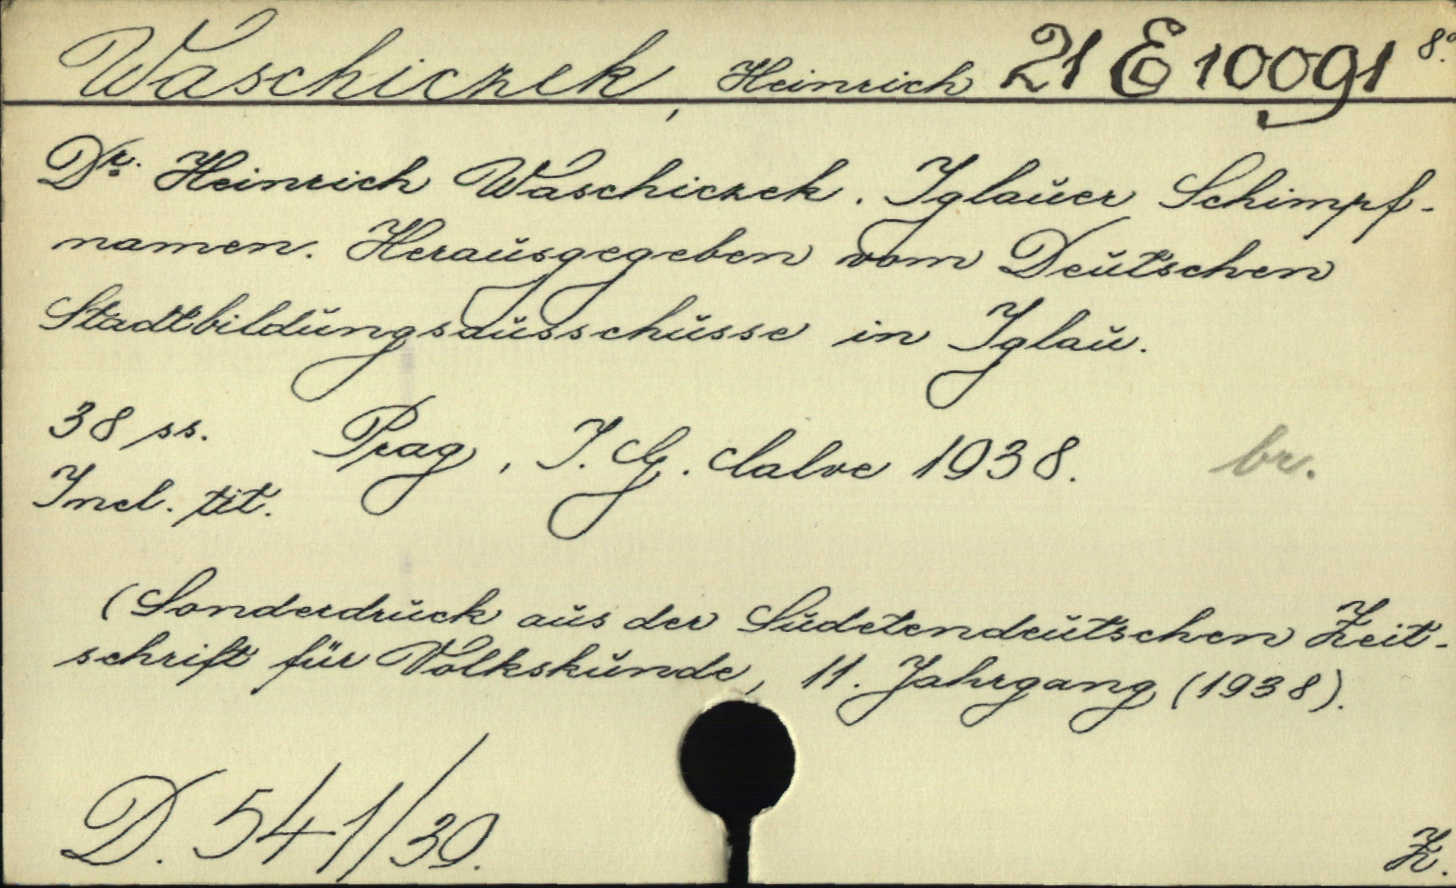 Waschiczek, Heinrich 21 E 10091 8°.
Dr. Heinrich Waschiczek. Iglauer Schimpf-
namen. Herausgegeben vom Deutschen
Stadtbildungsausschusse in Iglau.
38 ss. Prag, J. G. Calve 1938. br.
Incl. tit.
(Sonderdruck aus der Sudetendeutschen Zeit-
schrift für Volkskunde, 11. Jahrgang (1938).
D. 541/39.
Z.